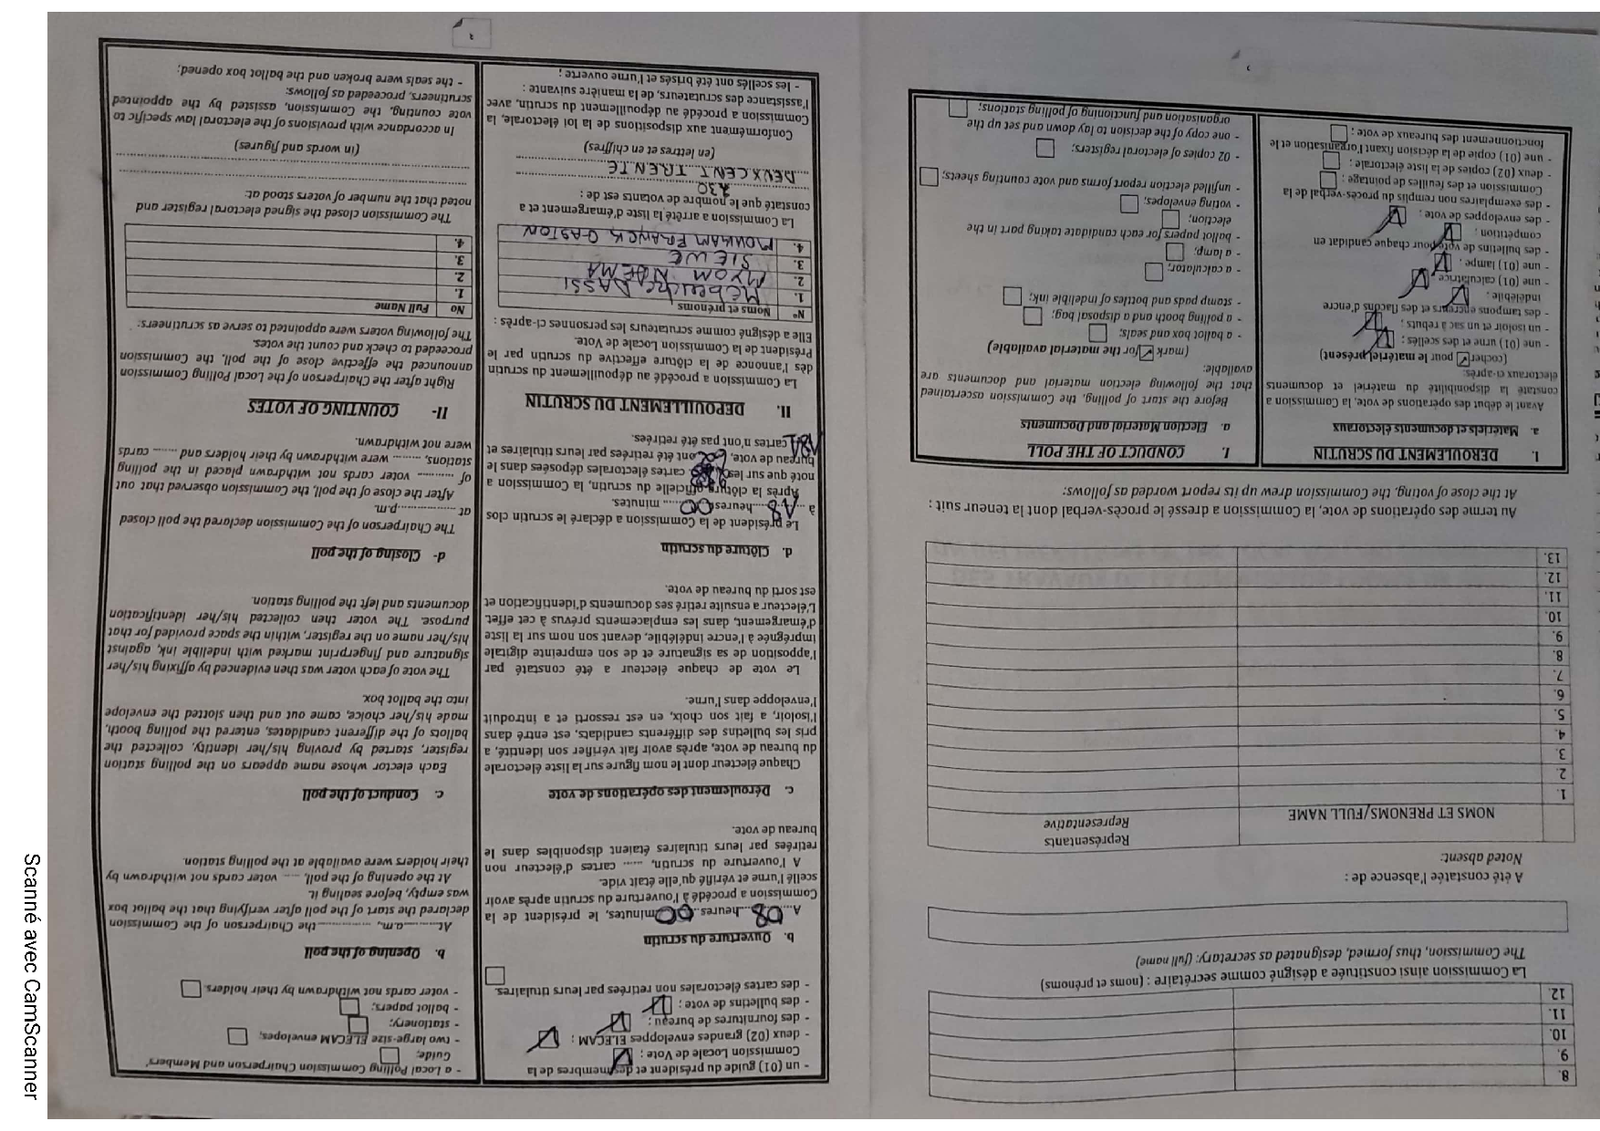 8.
9.
10.
11.
12.
La Commission ainsi constituée a désigné comme secrétaire : (noms et prénoms)
The Commission, thus formed, designated as secretary: (full name)
A été constatée l'absence de :
Noted absent:
NOMS ET PRENOMS/FULL NAME
Représentants
Representative
1.
2.
3.
4.
5.
6.
7.
8.
9.
10.
11.
12.
13.
Au terme des opérations de vote, la Commission a dressé le procès-verbal dont la teneur suit :
At the close of voting, the Commission drew up its report worded as follows:
I. DEROULEMENT DU SCRUTIN
a. Matériels et documents électoraux
Avant le début des opérations de vote, la Commission a
constaté la disponibilité du matériel et documents
électoraux ci-après:
(cocher ✓ pour le matériel présent)
- une (01) urne et des scellés ;
- un isoloir et un sac à rebuts ;
- des tampons encreurs et des flacons d'encre
indélébile ;
- une (01) calculatrice ;
- une (01) lampe ;
- des bulletins de vote pour chaque candidat en
compétition ;
- des enveloppes de vote ;
- des exemplaires non remplis du procès-verbal de la
Commission et des feuilles de pointage ;
- deux (02) copies de la liste électorale ;
- une (01) copie de la décision fixant l'organisation et le
fonctionnement des bureaux de vote ;
I. CONDUCT OF THE POLL
a. Election Material and Documents
Before the start of polling, the Commission ascertained
that the following election material and documents are
available:
(mark ✓ for the material available)
- a ballot box and seals;
- a polling booth and a disposal bag;
- stamp pads and bottles of indelible ink;
- a calculator;
- a lamp;
- ballot papers for each candidate taking part in the
election;
- voting envelopes;
- unfilled election report forms and vote counting sheets;
- 02 copies of electoral registers;
- one copy of the decision to lay down and set up the
organisation and functioning of polling stations;
- un (01) guide du président et des membres de la
Commission Locale de Vote ;
- deux (02) grandes enveloppes ELECAM ;
- des fournitures de bureau ;
- des bulletins de vote ;
- des cartes électorales non retirées par leurs titulaires.
b. Ouverture du scrutin
A 08 heures 00 minutes, le président de la
Commission a procédé à l'ouverture du scrutin après avoir
scellé l'urne et vérifié qu'elle était vide.
A l'ouverture du scrutin, ...... cartes d'électeur non
retirées par leurs titulaires étaient disponibles dans le
bureau de vote.
c. Déroulement des opérations de vote
Chaque électeur dont le nom figure sur la liste électorale
du bureau de vote, après avoir fait vérifier son identité, a
pris les bulletins des différents candidats, est entré dans
l'isoloir, a fait son choix, en est ressorti et a introduit
l'enveloppe dans l'urne.
Le vote de chaque électeur a été constaté par
l'apposition de sa signature et de son empreinte digitale
imprégnée à l'encre indélébile, devant son nom sur la liste
d'émargement, dans les emplacements prévus à cet effet.
L'électeur a ensuite retiré ses documents d'identification et
est sorti du bureau de vote.
d. Clôture du scrutin
Le président de la Commission a déclaré le scrutin clos
à 18 heures 00 minutes.
Après la clôture officielle du scrutin, la Commission a
noté que sur les cartes électorales déposées dans le
bureau de vote, ont été retirées par leurs titulaires et
cartes n'ont pas été retirées.
II. DEPOUILLEMENT DU SCRUTIN
La Commission a procédé au dépouillement du scrutin
dès l'annonce de la clôture effective du scrutin par le
Président de la Commission Locale de Vote.
Elle a désigné comme scrutateurs les personnes ci-après :
N° Noms et prénoms
1. DASSI
2. MYOM NDEMA
3. SIEWE
4. MOUKAM FRANCK GASTON
La Commission a arrêté la liste d'émargement et a
constaté que le nombre de votants est de :
230
DEUX CENT TRENTE
(en lettres et en chiffres)
Conformément aux dispositions de la loi électorale, la
Commission a procédé au dépouillement du scrutin, avec
l'assistance des scrutateurs, de la manière suivante :
- les scellés ont été brisés et l'urne ouverte ;
- a Local Polling Commission Chairperson and Members'
Guide;
- two large-size ELECAM envelopes;
- stationery;
- ballot papers;
- voter cards not withdrawn by their holders.
b. Opening of the poll
At..........a.m., ..............the Chairperson of the Commission
declared the start of the poll after verifying that the ballot box
was empty, before sealing it.
At the opening of the poll, .... voter cards not withdrawn by
their holders were available at the polling station.
c. Conduct of the poll
Each elector whose name appears on the polling station
register, started by proving his/her identity, collected the
ballots of the different candidates, entered the polling booth,
made his/her choice, came out and then slotted the envelope
into the ballot box.
The vote of each voter was then evidenced by affixing his/her
signature and fingerprint marked with indelible ink, against
his/her name on the register, within the space provided for that
purpose. The voter then collected his/her identification
documents and left the polling station.
d- Closing of the poll
The Chairperson of the Commission declared the poll closed
at ..................p.m.
After the close of the poll, the Commission observed that out
of .......... voter cards not withdrawn placed in the polling
stations, ........ were withdrawn by their holders and ....... cards
were not withdrawn.
II- COUNTING OF VOTES
Right after the Chairperson of the Local Polling Commission
announced the effective close of the poll, the Commission
proceeded to check and count the votes.
The following voters were appointed to serve as scrutineers:
No Full Name
1.
2.
3.
4.
The Commission closed the signed electoral register and
noted that the number of voters stood at:
(in words and figures)
In accordance with provisions of the electoral law specific to
vote counting, the Commission, assisted by the appointed
scrutineers, proceeded as follows:
- the seals were broken and the ballot box opened;
Scanné avec CamScanner